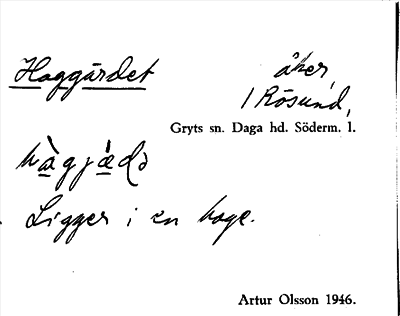 Haggärdet åker,
1 Rösund,
Gryts sn. Daga hd. Söderm. l.
hàgjæ̀də
Ligger i en hage.
Artur Olsson 1946.